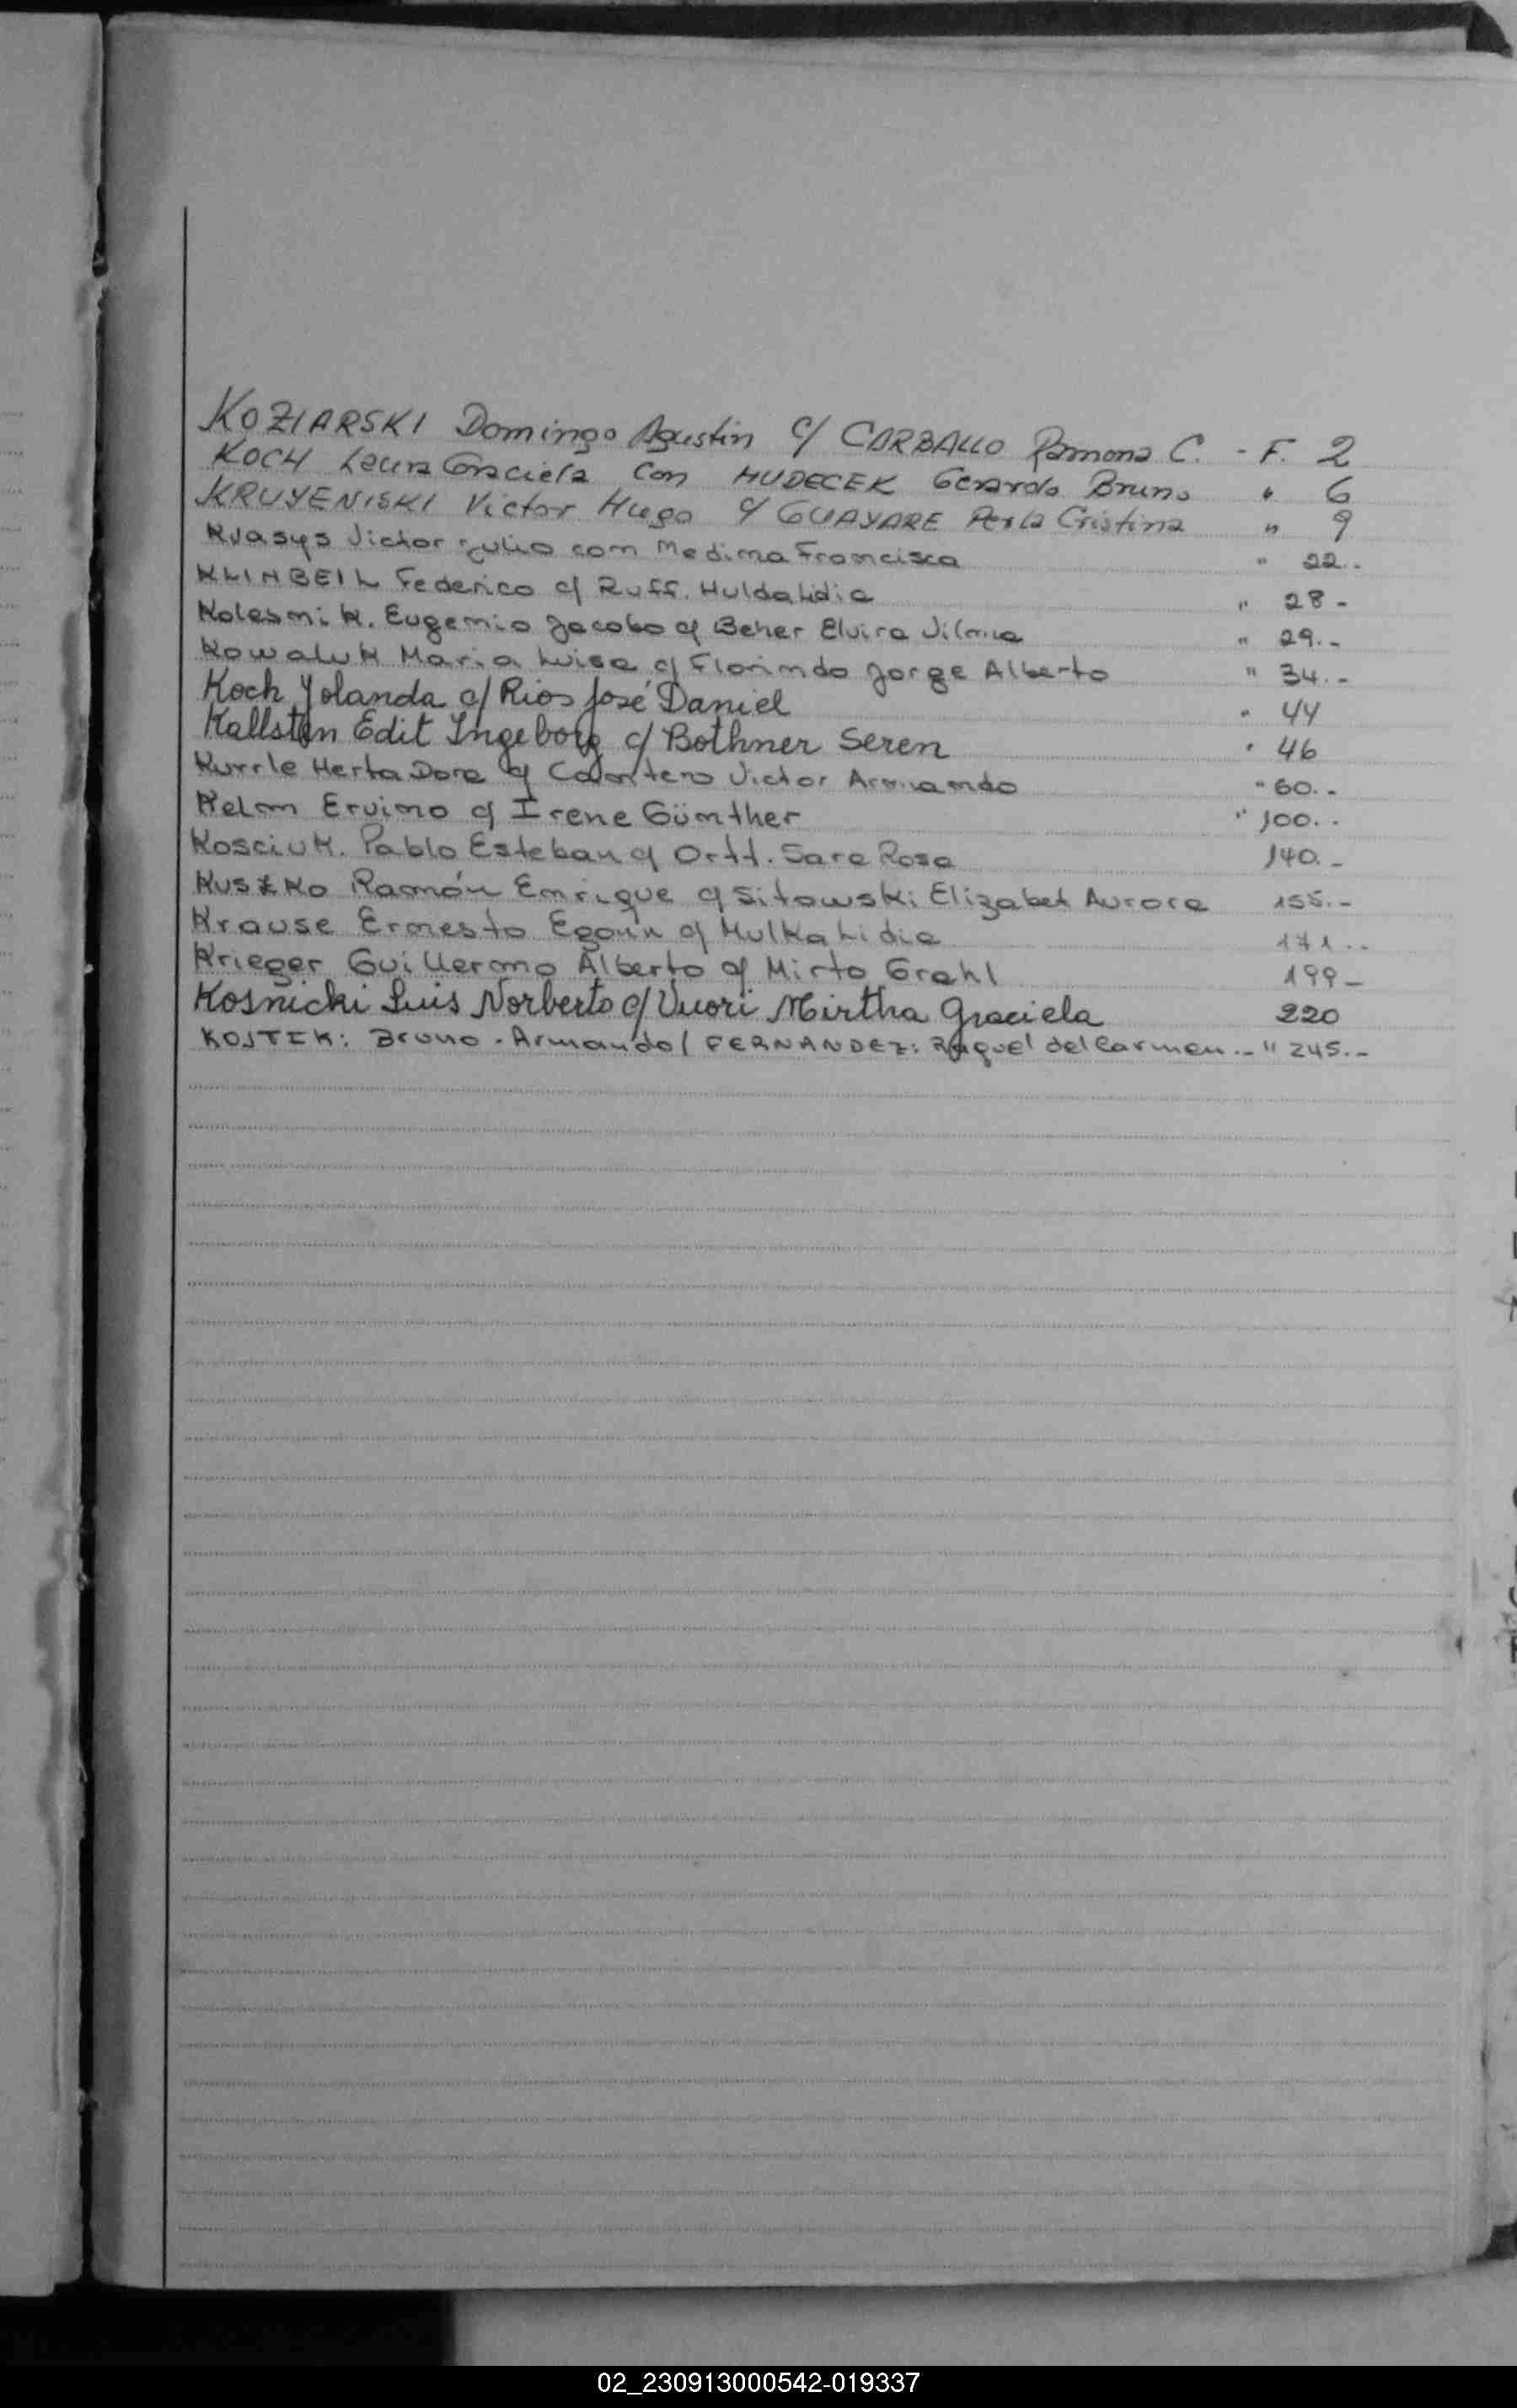 KOZIARSKI Domingo Agustin c/ CARBALLO Ramona C. - F. 2
KOCH Laura Graciela con HUDECEK Gerardo Bruno " 6
KRUYENISKI Victor Hugo c/ GUAYARE Perla Cristina " 9
Kvasys Victor Julio con Medina Francisca " 22.-
KLINBEIL Federico c/ Ruff. Hulda Lidia " 28-
Kolesnik. Eugenio Jacobo c/ Beher Elvira Vilma " 29.-
Kowaluk Maria Luisa c/ Florindo Jorge Alberto " 34.-
Koch Yolanda c/ Rios José Daniel " 44
Kallsten Edit Ingeborg c/ Bothner Seren " 46
Kurrle Herta Dora c/ Victor Armando " 60.-
Kelm Ervino c/ Irene Günther " 100.-
Kosciuk. Pablo Esteban c/ Ortt. Sara Rosa 140.-
Kuszko Ramón Enrique c/ Sitowski Elizabet Aurora 155.-
Krause Ernesto Egoin c/ Mulka Lidia 171.-
Krieger Guillermo Alberto c/ Mirta Grahl 199-
Kosnicki Luis Norberto c/ Vuori Mirtha Graciela 220
KOSTEK: Bruno - Armando / FERNANDEZ: Raquel del Carmen.- " 245.-
02_230913000542-019337